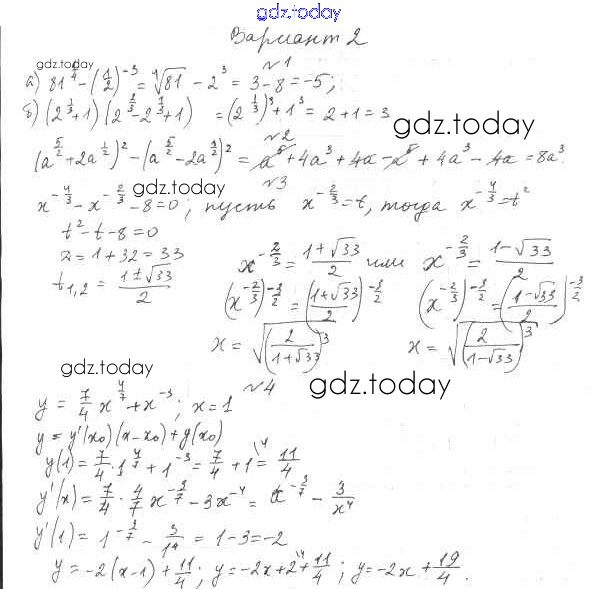 gdz.today
Вариант 2
gdz.today
№1
а) 81^{1/4} - (1/2)^{-3} = ⁴√81 - 2^3 = 3 - 8 = -5;
б) (2^{1/3}+1)(2^{2/3}-2^{1/3}+1) = (2^{1/3})^3 + 1^3 = 2+1 = 3
gdz.today
№2
(a^{5/2}+2a^{1/2})^2 - (a^{5/2}-2a^{1/2})^2 = a^5 + 4a^3 + 4a - a^5 + 4a^3 - 4a = 8a^3.
№3
gdz.today
x^{-4/3} - x^{-2/3} - 8 = 0; пусть x^{-2/3} = t, тогда x^{-4/3} = t^2
t^2 - t - 8 = 0
D = 1+32 = 33
t_{1,2} = (1±√33)/2
x^{-2/3} = (1+√33)/2 или x^{-2/3} = (1-√33)/2
(x^{-2/3})^{-3/2} = ((1+√33)/2)^{-3/2} (x^{-2/3})^{-3/2} = ((1-√33)/2)^{-3/2}
x = √(2/(1+√33))^3 x = √(2/(1-√33))^3
gdz.today
№4
gdz.today
y = 7/4 x^{4/7} + x^{-3}; x = 1
y = y'(x₀)(x-x₀) + y(x₀)
y(1) = 7/4 · 1^{4/7} + 1^{-3} = 7/4 + 1^{\4} = 11/4
y'(x) = 7/4 · 4/7 x^{-3/7} - 3x^{-4} = x^{-3/7} - 3/x^4
y'(1) = 1^{-3/7} - 3/1^4 = 1-3 = -2
y = -2(x-1) + 11/4; y = -2x + 2^{\4} + 11/4; y = -2x + 19/4.